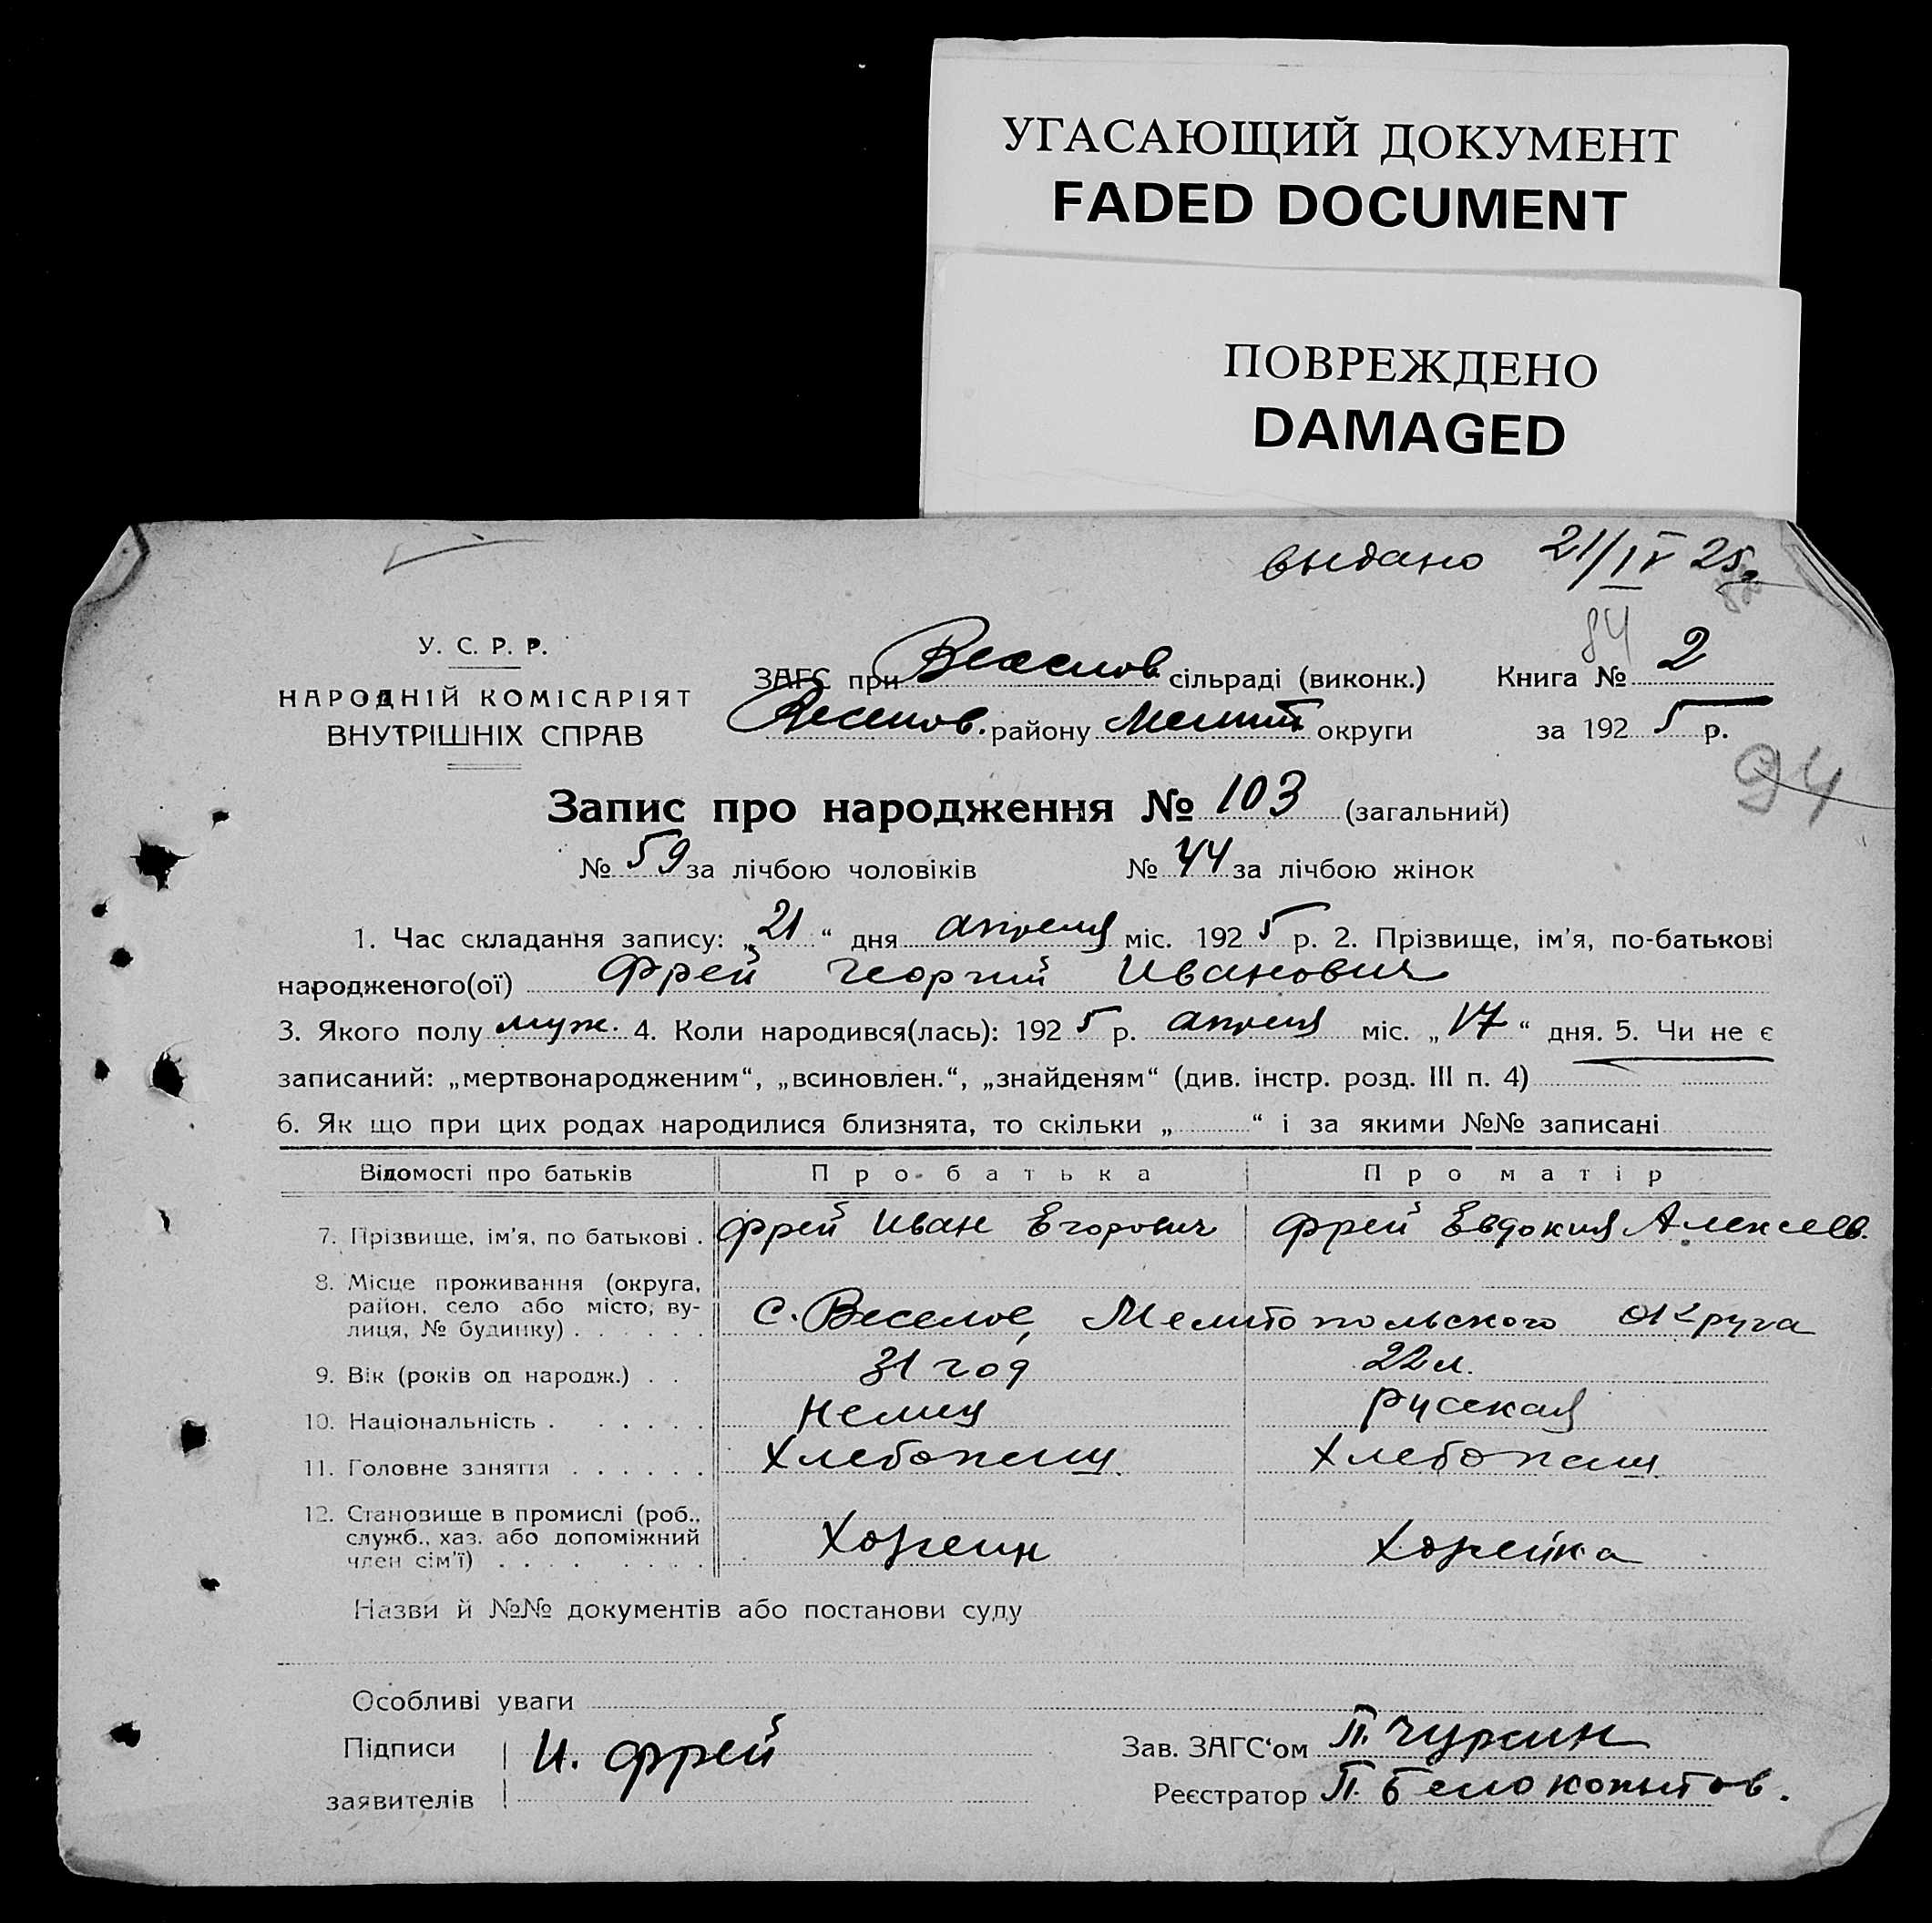 УГАСАЮЩИЙ ДОКУМЕНТ
FADED DOCUMENT
ПОВРЕЖДЕНО
DAMAGED
выдано 21/IV 25г
84
У. С. Р. Р.
НАРОДНІЙ КОМІСАРІЯТ
ВНУТРІШНІХ СПРАВ
ЗАГС при Веселов. сільраді (виконк.) Книга № 2
Веселов. району Мелит округи за 1925 р.
94
Запис про народження № 103 (загальний)
№ 59 за лічбою чоловіків № 44 за лічбою жінок
1. Час складання запису: „21“ дня апреля міс. 1925 р. 2. Прізвище, ім’я, по-батькові
народженого(ої) Фрей Георгий Иванович
3. Якого полу муж. 4. Коли народився(лась): 1925 р. апреля міс. „17“ дня. 5. Чи не є
записаний: „мертвонародженим“, „всиновлен.“, „знайденям“ (див. інстр. розд. III п. 4)
6. Як що при цих родах народилися близнята, то скільки „ “ і за якими №№ записані
Відомості про батьків Про батька Про матір
7. Прізвище, ім’я, по батькові . Фрей Иван Егорович Фрей Евдокия Алексеев.
8. Місце проживання (округа,
район, село або місто, ву-
лиця, № будинку) . . . . . . с. Веселое, Мелитопольского округа
9. Вік (років од народж.) . . 31 год 22 л.
10. Національність . . . . . . немец русская
11. Головне заняття . . . . . . Хлебопаш. Хлебопаш.
12. Становище в промислі (роб.,
служб., хаз. або допоміжний
член сім’ї) . . . . . . . . Хозяин Хозяйка
Назви й №№ документів або постанови суду
Особливі уваги
Підписи И. Фрей Зав. ЗАГС‘ом П. Чурсин
заявителів Реєстратор П. Белокопытов.